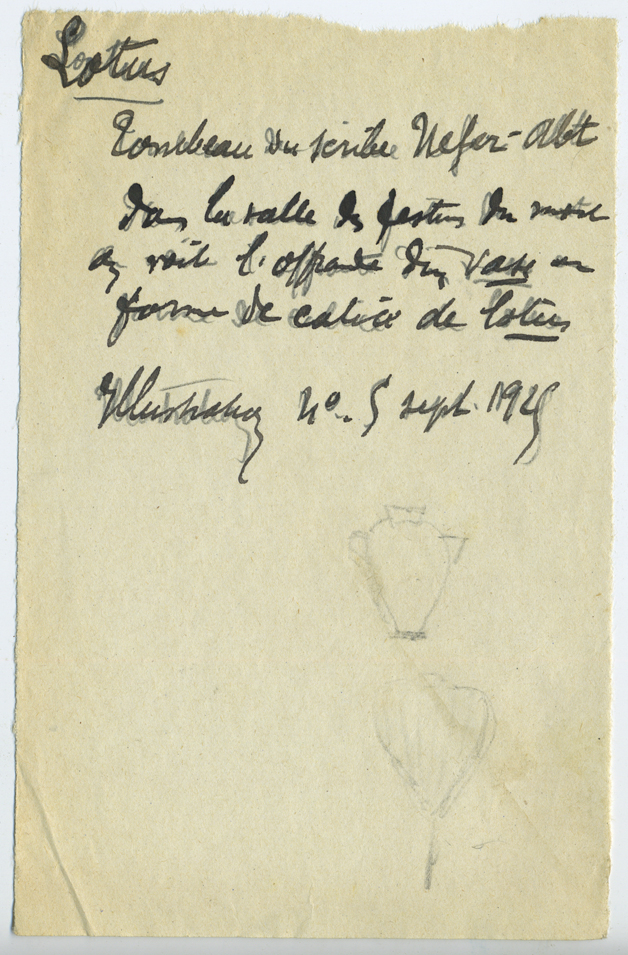 Lotus
Tombeau du scribe Nefer-Abt
Dans la salle des festins du mort
on voit l'offrande d'un vase en
forme de calice de lotus
Illustration No. 5 sept. 192